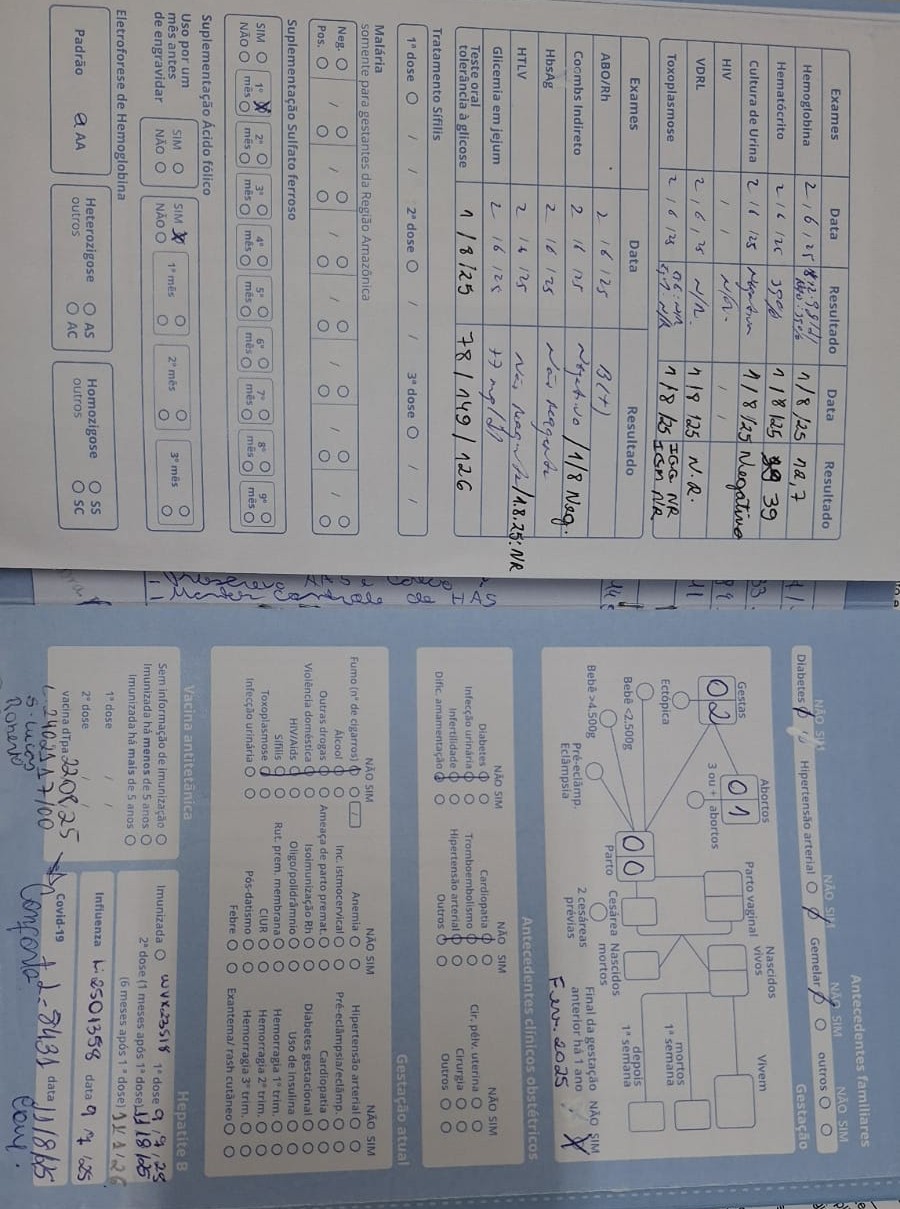 Exames Data Resultado Data Resultado
Hemoglobina 2 / 6 / 25 1 / 8 / 25 12,7
Hematócrito 2 / 6 / 25 39% 1 / 8 / 25 39
Cultura de Urina 2 / 6 / 25 Negativo 1 / 8 / 25 Negativo
HIV / / N/R. / /
VDRL 2 / 6 / 25 N/R. 1 / 8 / 25 N.R.
Toxoplasmose 2 / 6 / 25 1 / 8 / 25 IGG NR
IGM NR
Exames Data Resultado
ABO/Rh 2 / 6 / 25 B(+)
Coombs Indireto 2 / 6 / 25 Negativo / 1/8 Neg.
HbsAg 2 / 6 / 25 Não Reagente
HTLV 2 / 6 / 25 Não Reagente / 1.8.25: NR
Glicemia em jejum 2 / 6 / 25 77 mg/dl
Teste oral
tolerância à glicose 1 / 8 / 25 78 / 149 / 126
Tratamento Sífilis
1ª dose / / 2ª dose / / 3ª dose / /
Malária
somente para gestantes da Região Amazônica
Neg. / / / / / / /
Pos.
Suplementação Sulfato ferroso
SIM 1º 2º 3º 4º 5º 6º 7º 8º 9º
NÃO mês mês mês mês mês mês mês mês mês
Suplementação Ácido fólico
Uso por um
mês antes
de engravidar
SIM
NÃO
SIM X
NÃO
1º mês 2º mês 3º mês
Eletroforese de Hemoglobina
Padrão AA
Heterozigose AS
outros AC
Homozigose SS
outros SC
AAS
Manter controle de IAS
Antecedentes familiares
NÃO SIM NÃO SIM NÃO SIM NÃO SIM
Diabetes Hipertensão arterial Gemelar outros
Gestação
Gestas 02
Abortos 01
3 ou + abortos
Parto vaginal
Nascidos
vivos
Vivem
Ectópica
Bebê <2.500g
Bebê >4.500g
Parto 00
Cesárea
Nascidos
mortos
mortos
1ª semana
depois
1ª semana
Pré-eclâmp.
Eclâmpsia
2 cesáreas
prévias
Final da gestação
anterior há 1 ano
NÃO SIM
X
Fev. 2025
Antecedentes clínicos obstétricos
NÃO SIM NÃO SIM NÃO SIM
Diabetes Cardiopatia Cir. pélv. uterina
Infecção urinária Tromboembolismo Cirurgia
Infertilidade Hipertensão arterial Outros
Dific. amamentação Outros
Gestação atual
NÃO SIM NÃO SIM NÃO SIM
Fumo (nº de cigarros) Anemia Hipertensão arterial
Álcool Inc. istmocervical Pré-eclâmpsia/eclâmp.
Outras drogas Ameaça de parto premat. Cardiopatia
Violência doméstica Isoimunização Rh Diabetes gestacional
HIV/Aids Oligo/polidrâmnio Uso de insulina
Sífilis Rut. prem. membrana Hemorragia 1º trim.
Toxoplasmose CIUR Hemorragia 2º trim.
Infecção urinária Pós-datismo Hemorragia 3º trim.
Febre Exantema/ rash cutâneo
Vacina antitetânica
Sem informação de imunização
Imunizada há menos de 5 anos
Imunizada há mais de 5 anos
1ª dose / /
2ª dose / /
vacina dTpa 22 08, 25
Hepatite B
Imunizada 1ª dose 9, 7, 25
2ª dose (1 meses após 1ª dose) 11/8/25
(6 meses após 1ª dose)
Influenza data 9 7 25
Covid-19 data 11/8/25